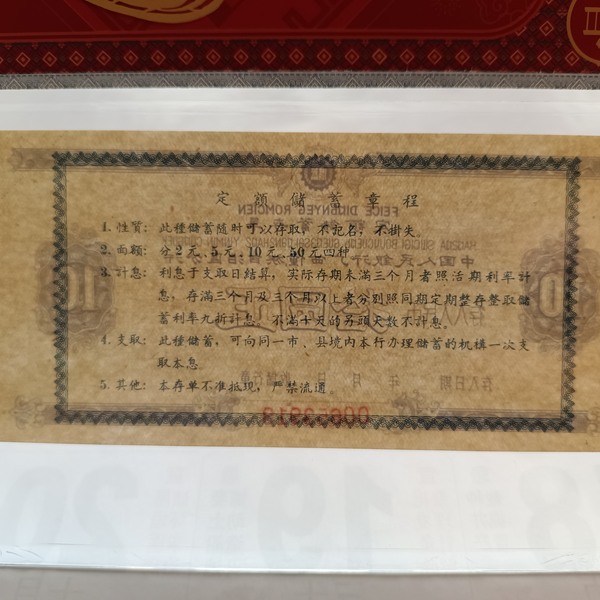 定額儲蓄章程
1. 性質: 此種儲蓄随時可以存取, 不記名, 不掛失.
2. 面額: 分2元、5元、10元、50元四种
3. 計息: 利息于支取日結算, 实际存期未滿三个月者照活期利率計
息, 存滿三个月及三个月以上者分別照同期定期整存整取儲
蓄利率九折計息, 不滿十天的另頭天数不計息.
4. 支取: 此種儲蓄, 可向同一市、县境内本行办理儲蓄的机構一次支
取本息.
5. 其他: 本存单不准抵現, 严禁流通.